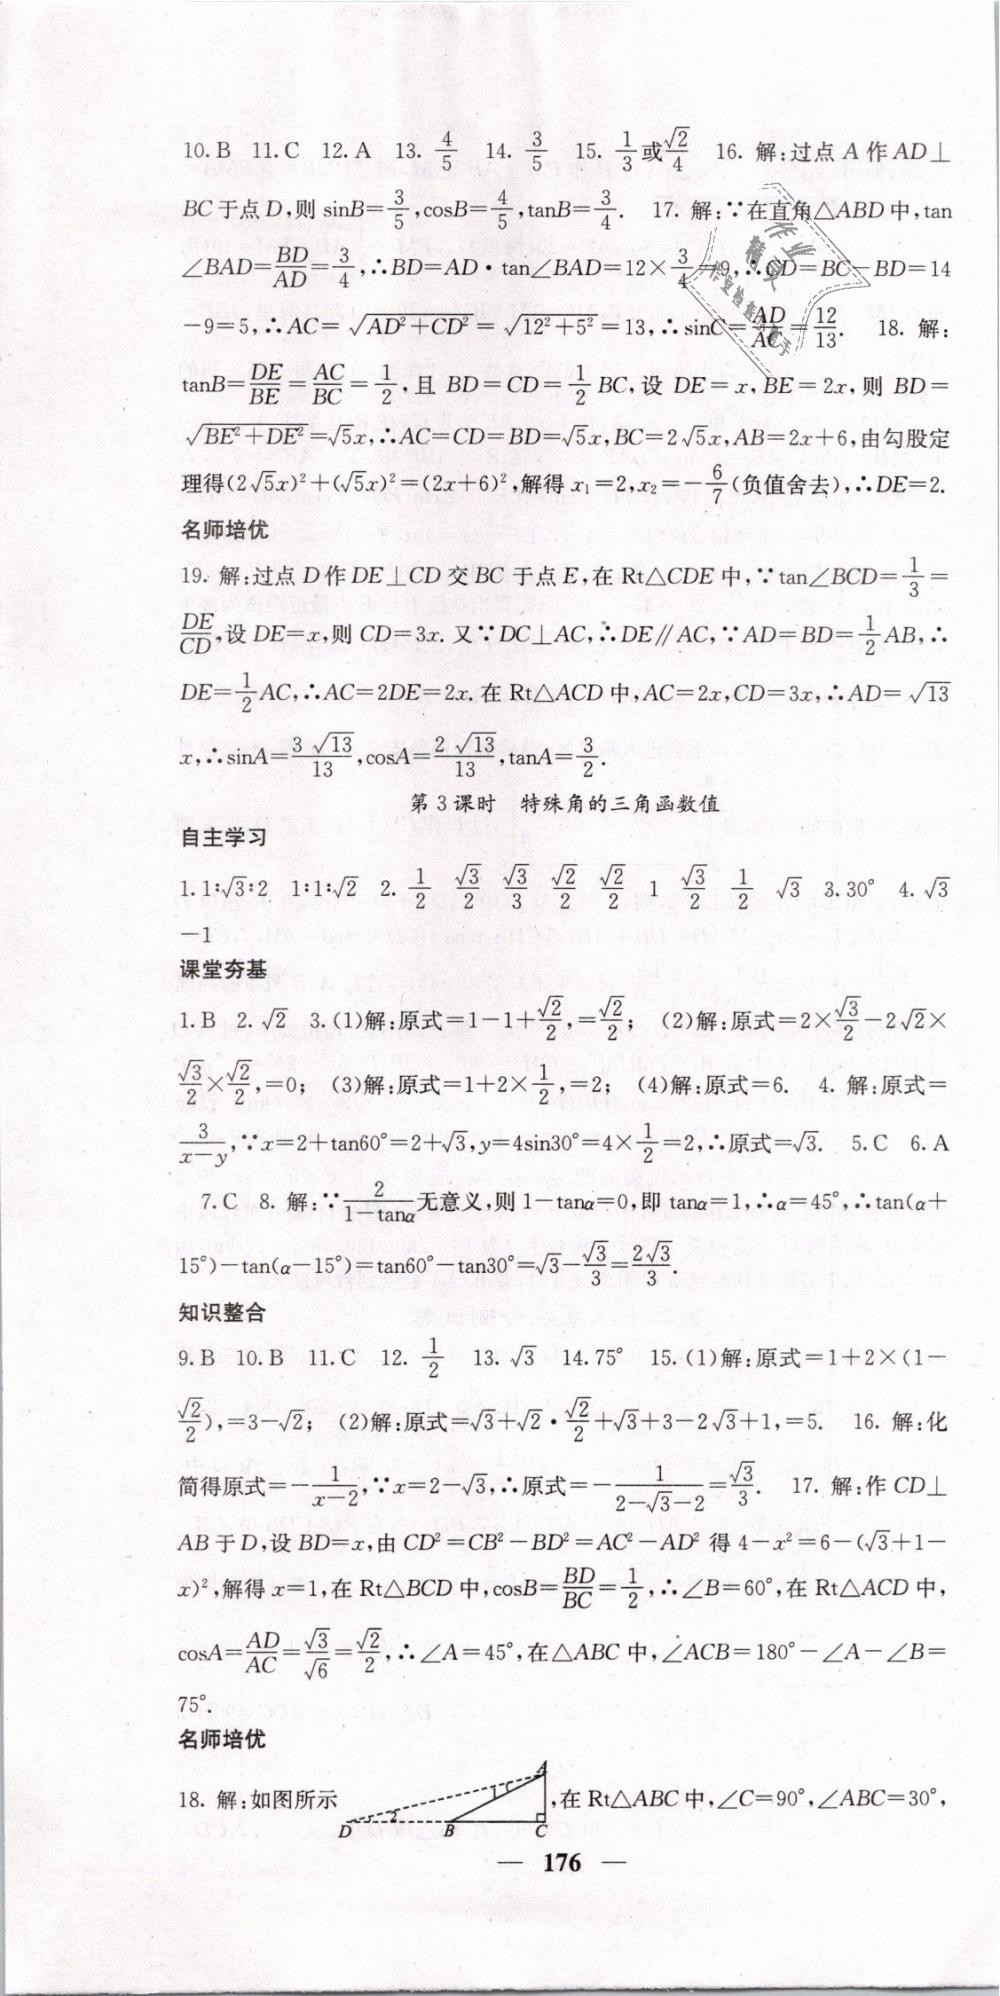 10. B 11. C 12. A 13. 4/5 14. 3/5 15. 1/3或√2/4 16. 解:过点 A 作 AD⊥
BC 于点 D,则 sinB=3/5,cosB=4/5,tanB=3/4. 17. 解:∵在直角△ABD 中,tan
∠BAD=BD/AD=3/4,∴BD=AD·tan∠BAD=12×3/4=9,∴CD=BC-BD=14
-9=5,∴AC=√(AD²+CD²)=√(12²+5²)=13,∴sinC=AD/AC=12/13. 18. 解:
tanB=DE/BE=AC/BC=1/2,且 BD=CD=1/2BC,设 DE=x,BE=2x,则 BD=
√(BE²+DE²)=√5x,∴AC=CD=BD=√5x,BC=2√5x,AB=2x+6,由勾股定
理得(2√5x)²+(√5x)²=(2x+6)²,解得 x₁=2,x₂=-6/7(负值舍去),∴DE=2.
名师培优
19. 解:过点 D 作 DE⊥CD 交 BC 于点 E,在 Rt△CDE 中,∵tan∠BCD=1/3=
DE/CD,设 DE=x,则 CD=3x. 又∵DC⊥AC,∴DE∥AC,∵AD=BD=1/2AB,∴
DE=1/2AC,∴AC=2DE=2x. 在 Rt△ACD 中,AC=2x,CD=3x,∴AD=√13
x,∴sinA=3√13/13,cosA=2√13/13,tanA=3/2.
第 3 课时 特殊角的三角函数值
自主学习
1. 1∶√3∶2 1∶1∶√2 2. 1/2 √3/2 √3/3 √2/2 √2/2 1 √3/2 1/2 √3 3. 30° 4. √3
-1
课堂夯基
1. B 2. √2 3. (1)解:原式=1-1+√2/2,=√2/2; (2)解:原式=2×√3/2-2√2×
√3/2×√2/2,=0; (3)解:原式=1+2×1/2,=2; (4)解:原式=6. 4. 解:原式=
3/(x-y),∵x=2+tan60°=2+√3,y=4sin30°=4×1/2=2,∴原式=√3. 5. C 6. A
7. C 8. 解:∵2/(1-tanα)无意义,则 1-tanα=0,即 tanα=1,∴α=45°,∴tan(α+
15°)-tan(α-15°)=tan60°-tan30°=√3-√3/3=2√3/3.
知识整合
9. B 10. B 11. C 12. 1/2 13. √3 14. 75° 15. (1)解:原式=1+2×(1-
√2/2),=3-√2; (2)解:原式=√3+√2·√2/2+√3+3-2√3+1,=5. 16. 解:化
简得原式=-1/(x-2),∵x=2-√3,∴原式=-1/(2-√3-2)=√3/3. 17. 解:作 CD⊥
AB 于 D,设 BD=x,由 CD²=CB²-BD²=AC²-AD² 得 4-x²=6-(√3+1-
x)²,解得 x=1,在 Rt△BCD 中,cosB=BD/BC=1/2,∴∠B=60°,在 Rt△ACD 中,
cosA=AD/AC=√3/√6=√2/2,∴∠A=45°,在△ABC 中,∠ACB=180°-∠A-∠B=
75°.
名师培优
18. 解:如图所示 A 1 2 D B C ,在 Rt△ABC 中,∠C=90°,∠ABC=30°,
— 176 —
作业
精灵
作业检查小助手